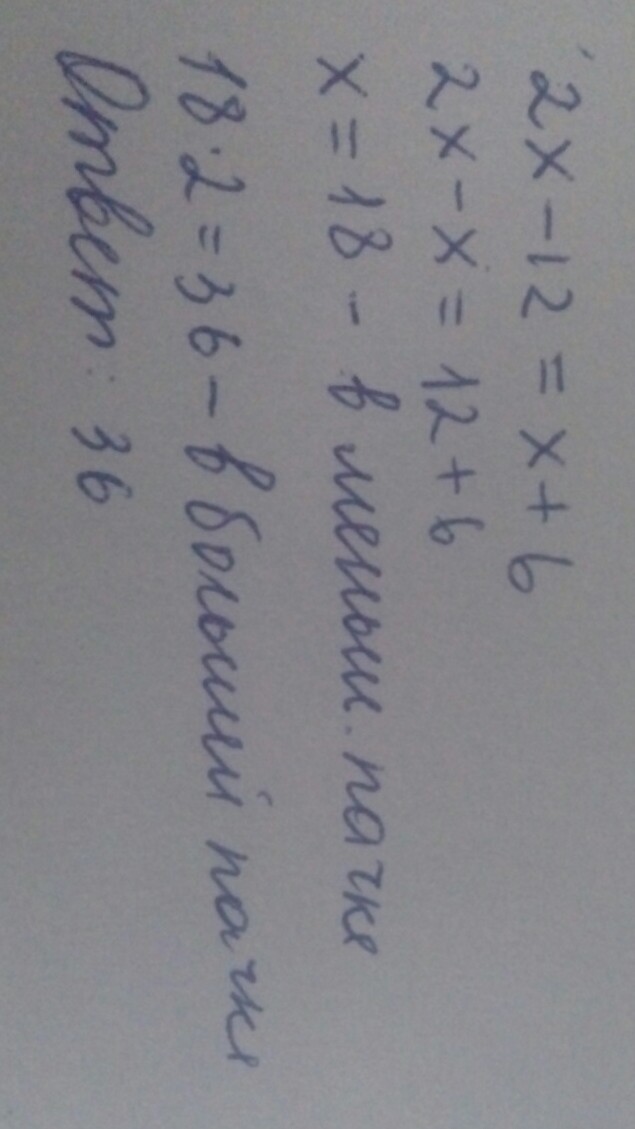 2x - 12 = x + 6
2x - x = 12 + 6
x = 18 - в меньш. пачке
18 · 2 = 36 - в большей пачке
Ответ: 36